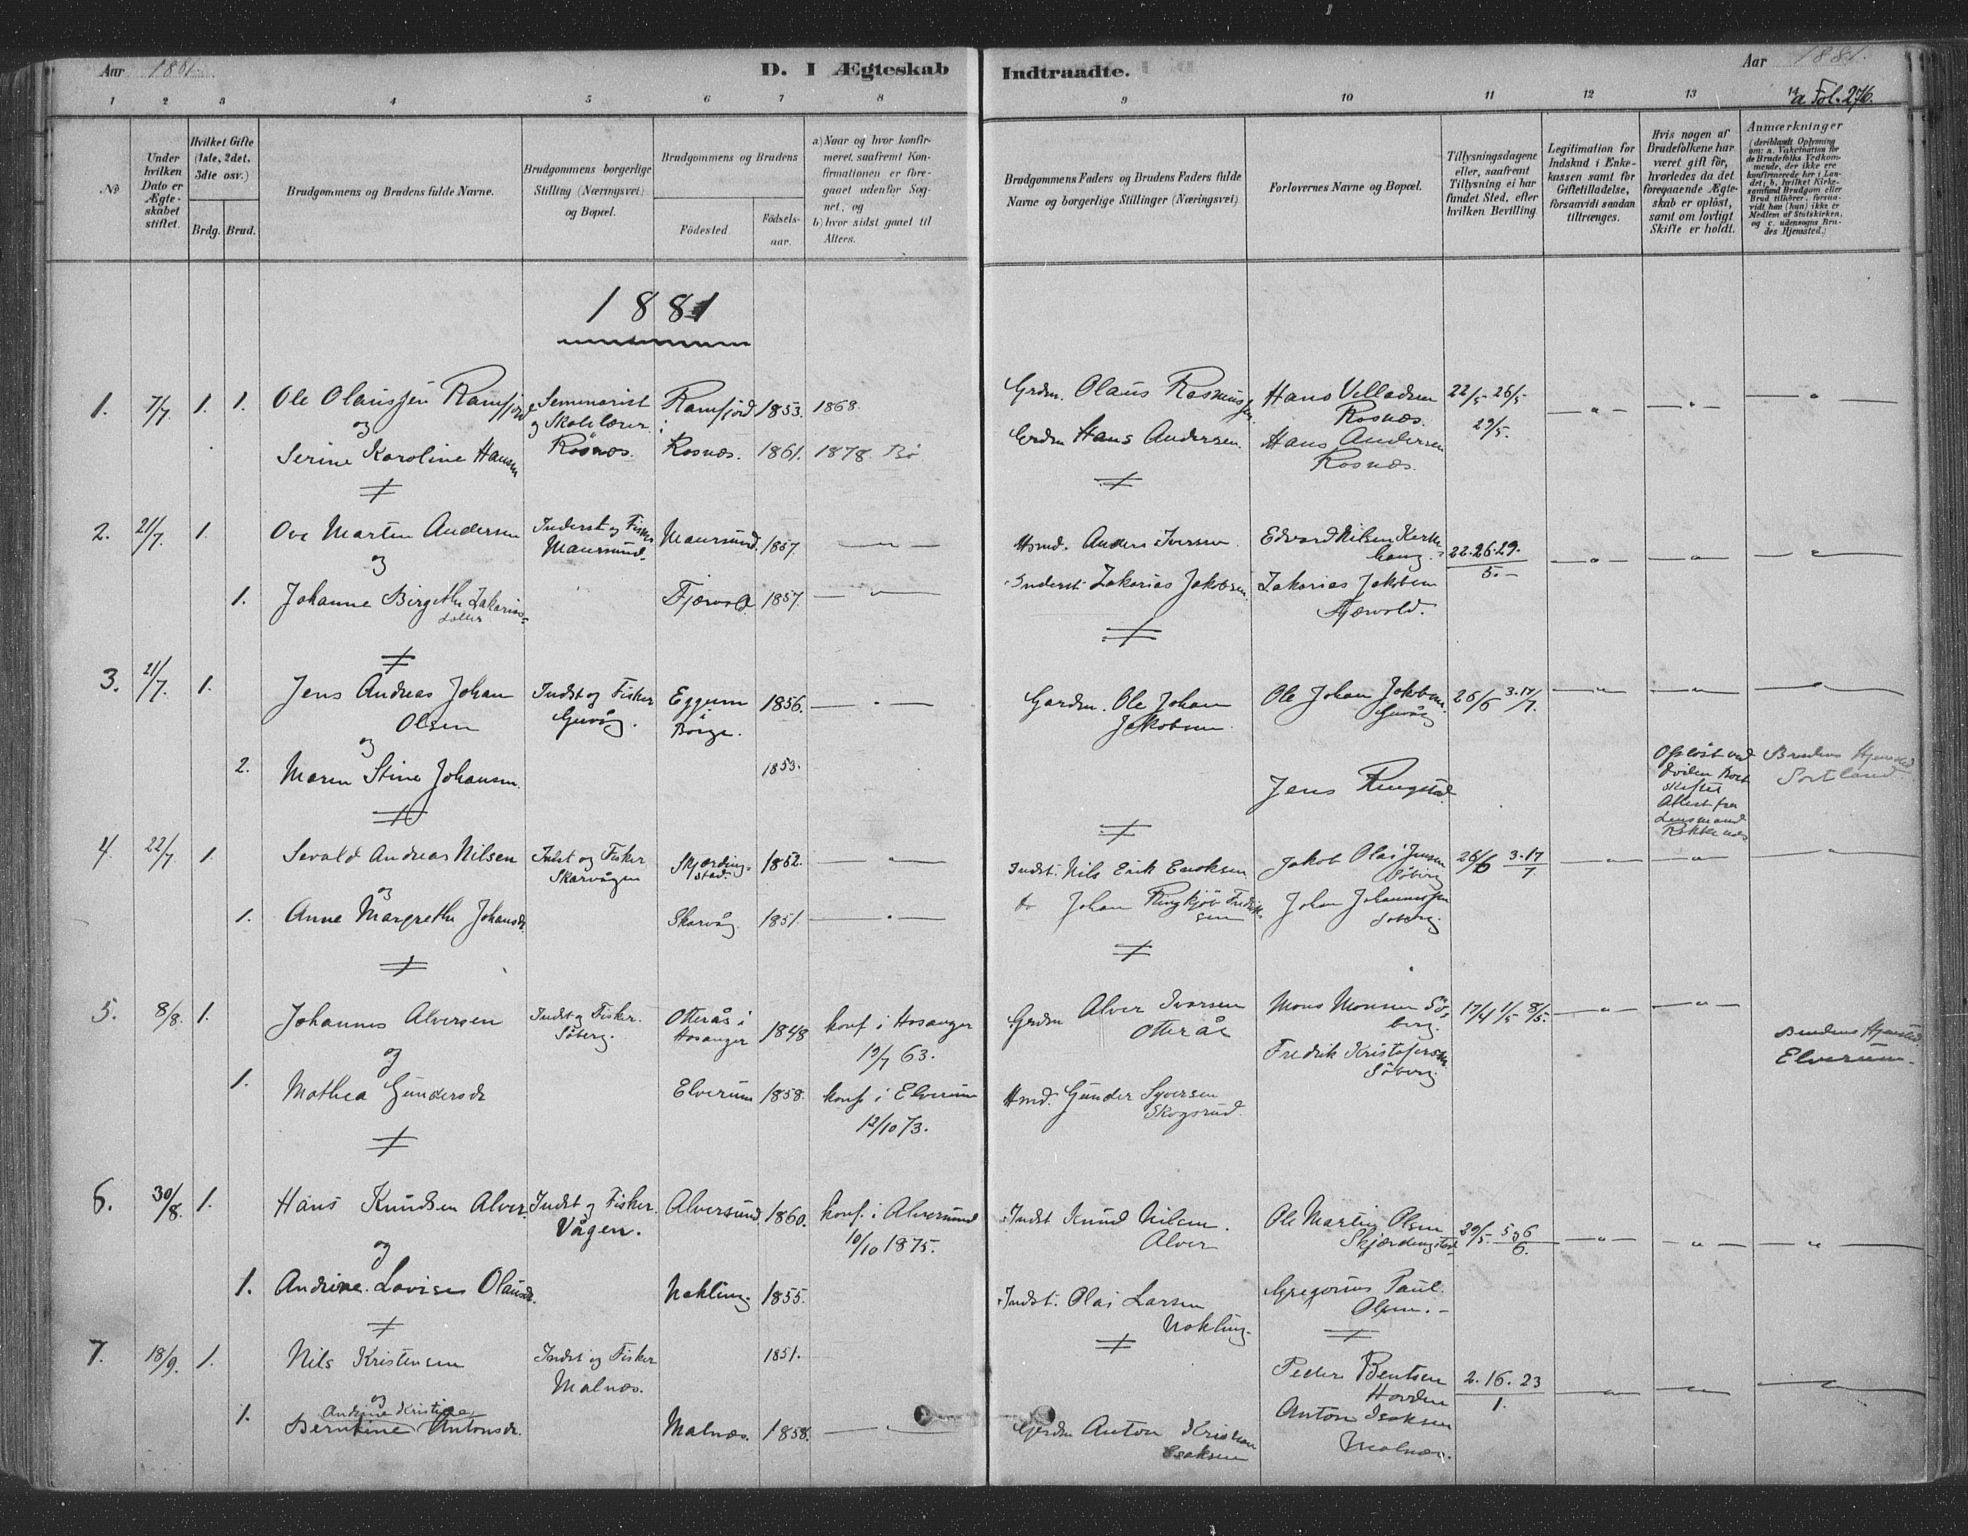 Aar 1881. D. I Ægteskab Indtraadte. Aar 1881.
1 2 3 4 5 6 7 8 9 10 11 12 13 14
a Fol. 276.
No
Under hvilken Dato er Ægteskabet stiftet.
Hvilket Gifte (1ste, 2det, 3die osv.)
Brdg. Brud.
Brudgommens og Brudens fulde Navne.
Brudgommens borgerlige Stilling (Næringsvei) og Bopæl.
Brudgommens og Brudens
Födested
Födsels-aar.
a) Naar og hvor konfirmeret, saafremt Konfirmationen er foregaaet udenfor Sognet, og
b) hvor sidst gaaet til Alters.
Brudgommens Faders og Brudens Faders fulde Navne og borgerlige Stillinger (Næringsvei)
Forlovernes Navne og Bopæl.
Tillysningsdagene eller, saafremt Tillysning ei har fundet Sted, efter hvilken Bevilling
Legitimation for Indskud i Enkekassen samt for Giftetilladelse, forsaavidt saadan tiltrænges.
Hvis nogen af Brudefolkene har været gift för, hvorledes da det foregaaende Ægteskab er oplöst, samt om lovligt Skifte er holdt.
Anmærkninger
(deriblandt Oplysning om: a. Vakcination for de Brudefolks Vedkommende, der ikke ere konfirmerede her i Landet; b. hvilket Kirkesamfund Brudgom eller Brud tilhörer, forsaavidt han (hun) ikke er Medlem af Statskirken, og c. udensogns Brudes Hjemsted.)
1881
1. 7/7 1. 1. Ole Olaussen Ramfjord Seminarist Ramfjord 1853. 1868. Grdm. Olaus Rasmussen Hans Villadsen 22/5 26/5
og og Skolelærer Rosnæs. 29/5.
Serine Karoline Hansen Rosnæs. Rosnæs. 1861. 1878 Bø Grdm Hans Andersen. Hans Andersen
Rosnæs.
2. 21/7. 1. Ove Marten Andersen Inderst og Fisker Maursund. 1857. Hsmd. Anders Iversen Edvard Nilsen 22. 26. 29.
og Maursund. 5.
1. Johanne Birgethe Zakarias- Fjærvold 1857. Inderst. Zakarias Jakobsen. Zakarias Jakobsen
datter Fjærvold.
3. 21/7. 1. Jens Andreas Johan Indst og Fisker Eggum 1856. Gardm. Ole Johan Ole Johan Jakobsen 26/6 3. 17/7.
Olsen Guvåg. i Borge. Jakobsen Guvåg
og
2. Maren Stine Johansen. 1853. Jens Ringstad. Brudens Hjemsted
Sortland
Attest fra
Lensmand
4. 22/7 1. Sevald Andreas Nilsen Indst og Fisker Skjærdingstad. 1852. Indst. Nils Erik Eriksen Jakob Olai Jensen 26/6 3. 17/7
og Skarvågen Søberg
1. Anne Margrethe Johansdr. Skarvåg. 1851. Johan Ringkjøb Fredriksen Johan Johannessen
Søberg.
5. 8/8. 1. Johannes Alversen Indst og Fisker. Otterås i 1848 konf i Hosanger Grdm Alver Ivarsen Mons Monsen Søberg. 17/4 1/5 8/5.
og Søberg. Hosanger 19/7 63. Otterås Fredrik Kristofersen
Søberg.
Brudens Hjemsted
Elverum.
1. Mathea Gundersdr Elverum 1858. konf i Elverum Hmd. Gunder Syversen
12/10 73. Skogsrud.
6. 30/8. 1. Hans Knudsen Alver Indst og Fisker. Alversund 1860. konf. i Alversund Indst Knud Nilsen. Ole Martin Olsen 29/5. 5 og 6/6.
og Vågen. 10/10 1875. Alver Skjærdingstad
1. Andrine Lovise Olaisdr. Nøkling 1855. Indst. Olai Larsen Gregorius Paul
Nøkling. Olsen.
7. 18/9. 1. Nils Kristensen Indst og Fisker 1851. Peder Bentsen 2. 16. 23
og Malnæs. Hovden 1.
Andrine Kristine
1. Berntine Antonsdr. Malnæs. 1858. Gardm Anton Kristian Anton Isaksen
Esaksen Malnæs.